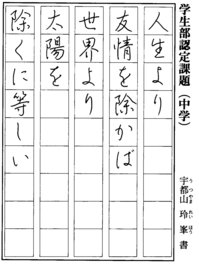 学生部認定課題(中学)
宇都山玲峯書
うつやまれいほう
人生より
友情を除かば
世界より
太陽を
除くに等しい